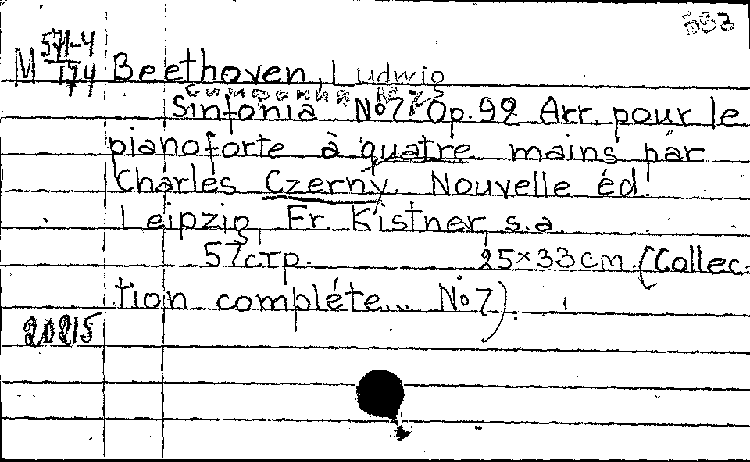 593
M 571-4/174 Beethoven, Ludwig
Sinfonia No 7. Op. 92 Arr. pour le
pianoforte à quatre mains par
Charles Czerny. Nouvelle éd.
Leipzig, Fr. Kistner, s.a.
57 стр. 25×33 cm. (Collec-
tion complète... No 7).
20215